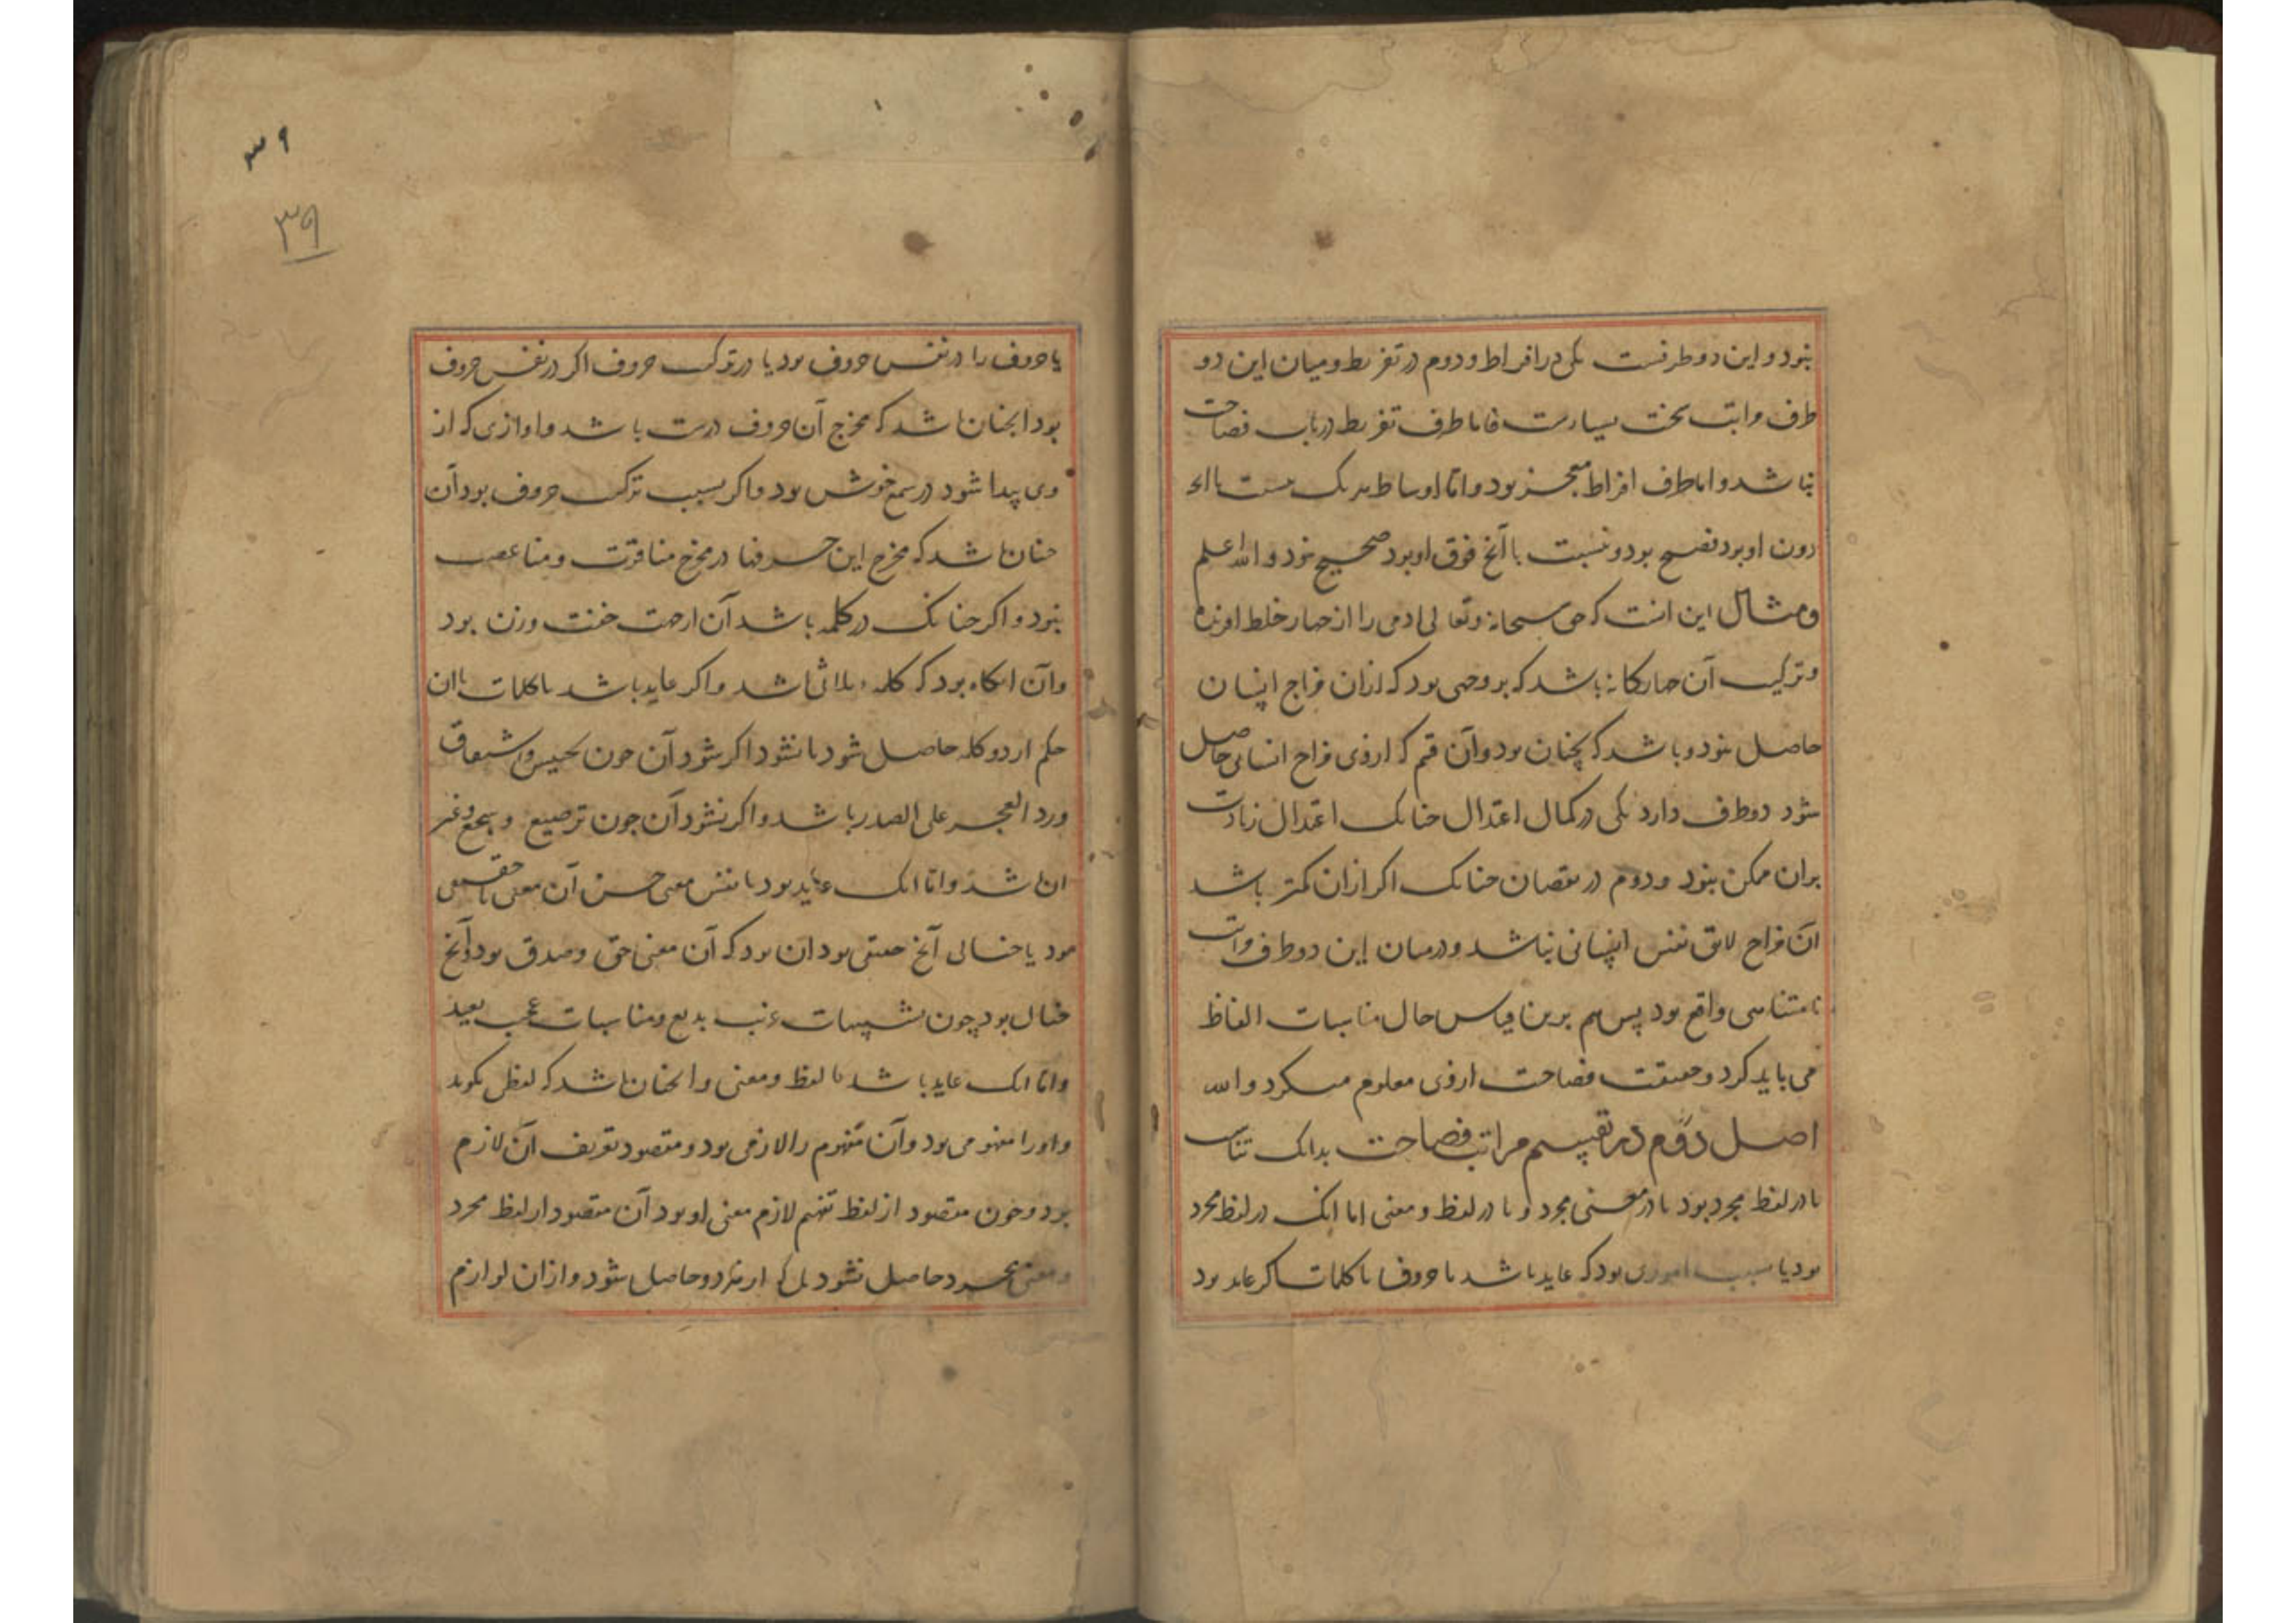 بنود و این دو طرفست یکی در افراط و دوم در تفریط و میان این دو
طرف مراتب سخت بسیارست فاما طرف تفریط در باب فصاحت
نباشد و اما طرف افراط معجز بود و اما اوساط هر یک نسبت با انچ
دون او بود فصیح بود و نسبت با آنچ فوق او بود صحیح نبود و الله اعلم
و مثال این انست که حق سبحانه و تعالی ادمی را از چهار خلط افریده
و ترکیب آن چهارکانه باشد که بر وجهی بود که ازان مزاج اینسان
حاصل نبود و باشد که چنان بود و آن قسم که ازوی مزاج انسانی حاصل
شود دو طرف دارد یکی در کمال اعتدال چنانک اعتدال زیادت
بران ممکن نبود و دوم در نقصان چنانک اکر ازان کمتر باشد
ان مزاج لایق نفس اینسانی نباشد و درمیان این دو طرف مراتب
نامتناهی واقع بود پس هم برین قیاس حال مناسبات الفاظ
می باید کرد و حقیقت فصاحت ازوی معلوم میکردد و الله
اصل دوم در تقسیم مراتب فصاحت بدانک تناسب
یا در لفظ مجرد بود یا در معنی مجرد و یا در لفظ و معنی اما انک در لفظ مجرد
بود یا سبب اموری بود که عاید باشد با حروف یا با کلمات اکر عاید بود
۳۹
۳۹
با حروف را در نفس حروف بود یا در ترکیب حروف اکر در نفس حروف
بود انچنان باشد که مخرج آن حروف درست باشد و اوازی که از
وی پیدا شود در سمع خوش بود و اکر بسبب ترکیب حروف بود آن
چنان باشد که مخرج این حرفها در مخرج منافرت و
نبود و اکر چنانک در کلمه باشد آن از جهت خفت وزن بود
و آن انکاه بود که کلمه ثلاثی باشد و اکر عاید باشد با کلمات یا ان
حکم از دو کلمه حاصل شود یا نشود اکر شود آن چون تجنیس و اشتقاق
و رد العجز علی الصدر باشد و اکر نشود آن چون ترصیع و سجع و غیر
ان باشد و اما انک عاید بود با نفس معنی حسن آن معنی یا حقیقی
بود یا خیالی آنچ حقیقی بود ان بود که آن معنی حق و صدق بود و آنچ
خیال بود چون تشبیهات غریب بدیع و مناسبات عجیب بعید
و اما انک عاید باشد با لفظ و معنی و انچنان باشد که لفظی بکوید
و اورا مفهومی بود و آن مفهوم را لازمی بود و مقصود تعریف آن لازم
بود و چون مقصود از لفظ تفهم لازم معنی او بود آن مقصود از لفظ مجرد
و معنی مجرد حاصل نشود بل که از هر دو حاصل شود و ازان لوازم